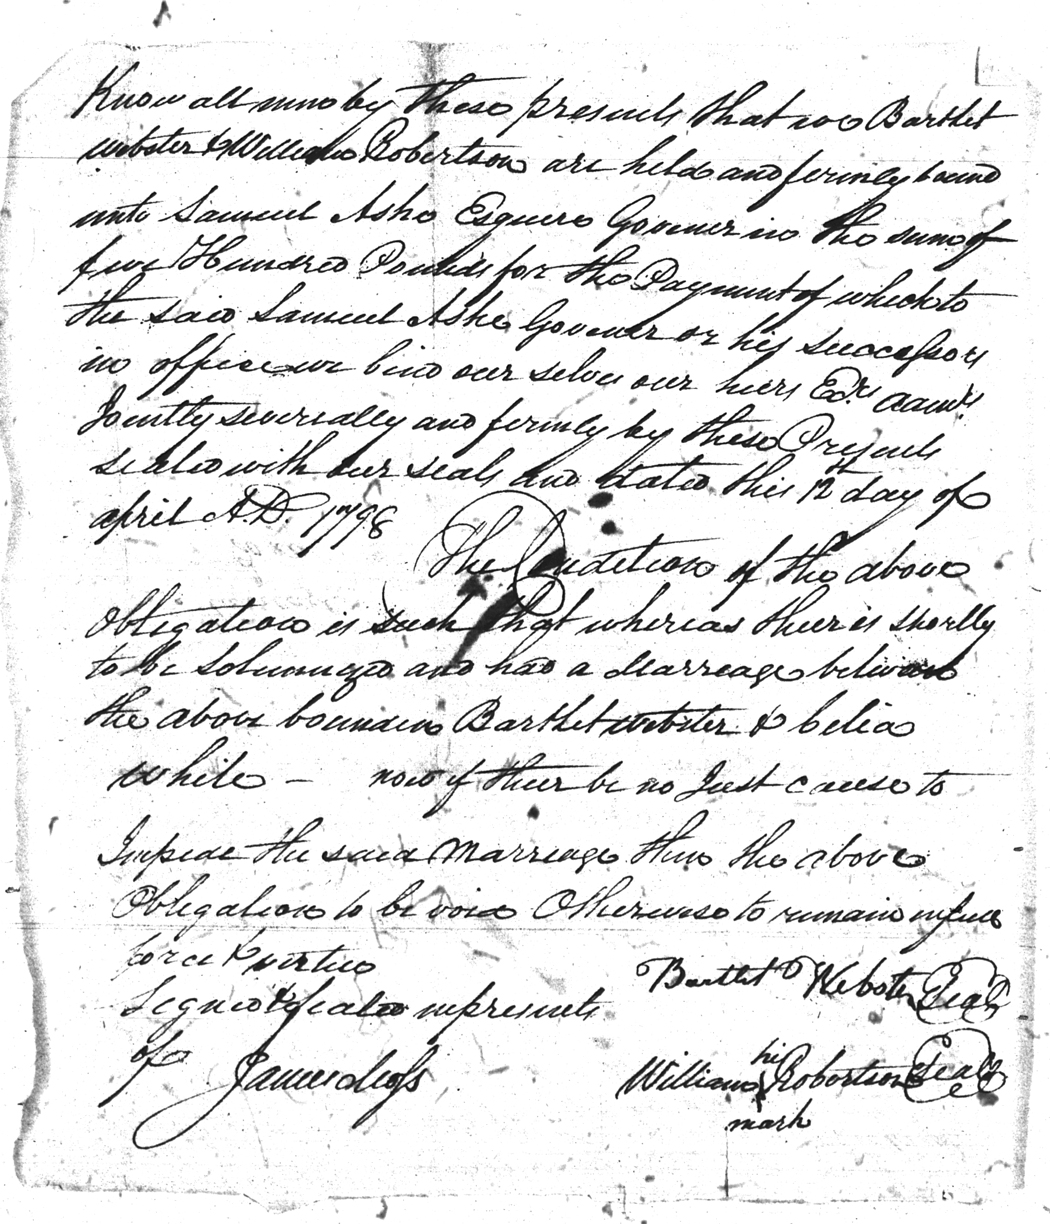 Know all men by these presents that we Barttet
webster & William Robertson are held and firmly bound
unto Samuel Ashe Esquere Govener in the sum of
five Hundred Pounds for the Payment of which to
the said Samuel Ashe Govener or his successors
in office we bind our selves our heirs Exrs. Admrs
Jointly severially and firmly by these Presents
sealed with our seals and dated this 12th day of
april A.D. 1798
The Condition of the above
Obligation is such that whereas their is shortly
to be Solumnized and had a Marreage between
the above bounden Barttet webster & Celia
while - now if their be no Just cause to
Impede the said Marreage then the above
Obligation to be void Otherwise to remain in full
force & virtue
Segned & Sealed in presents
of
Barttet Webster Seal
James
William his Robertson Seal
mark